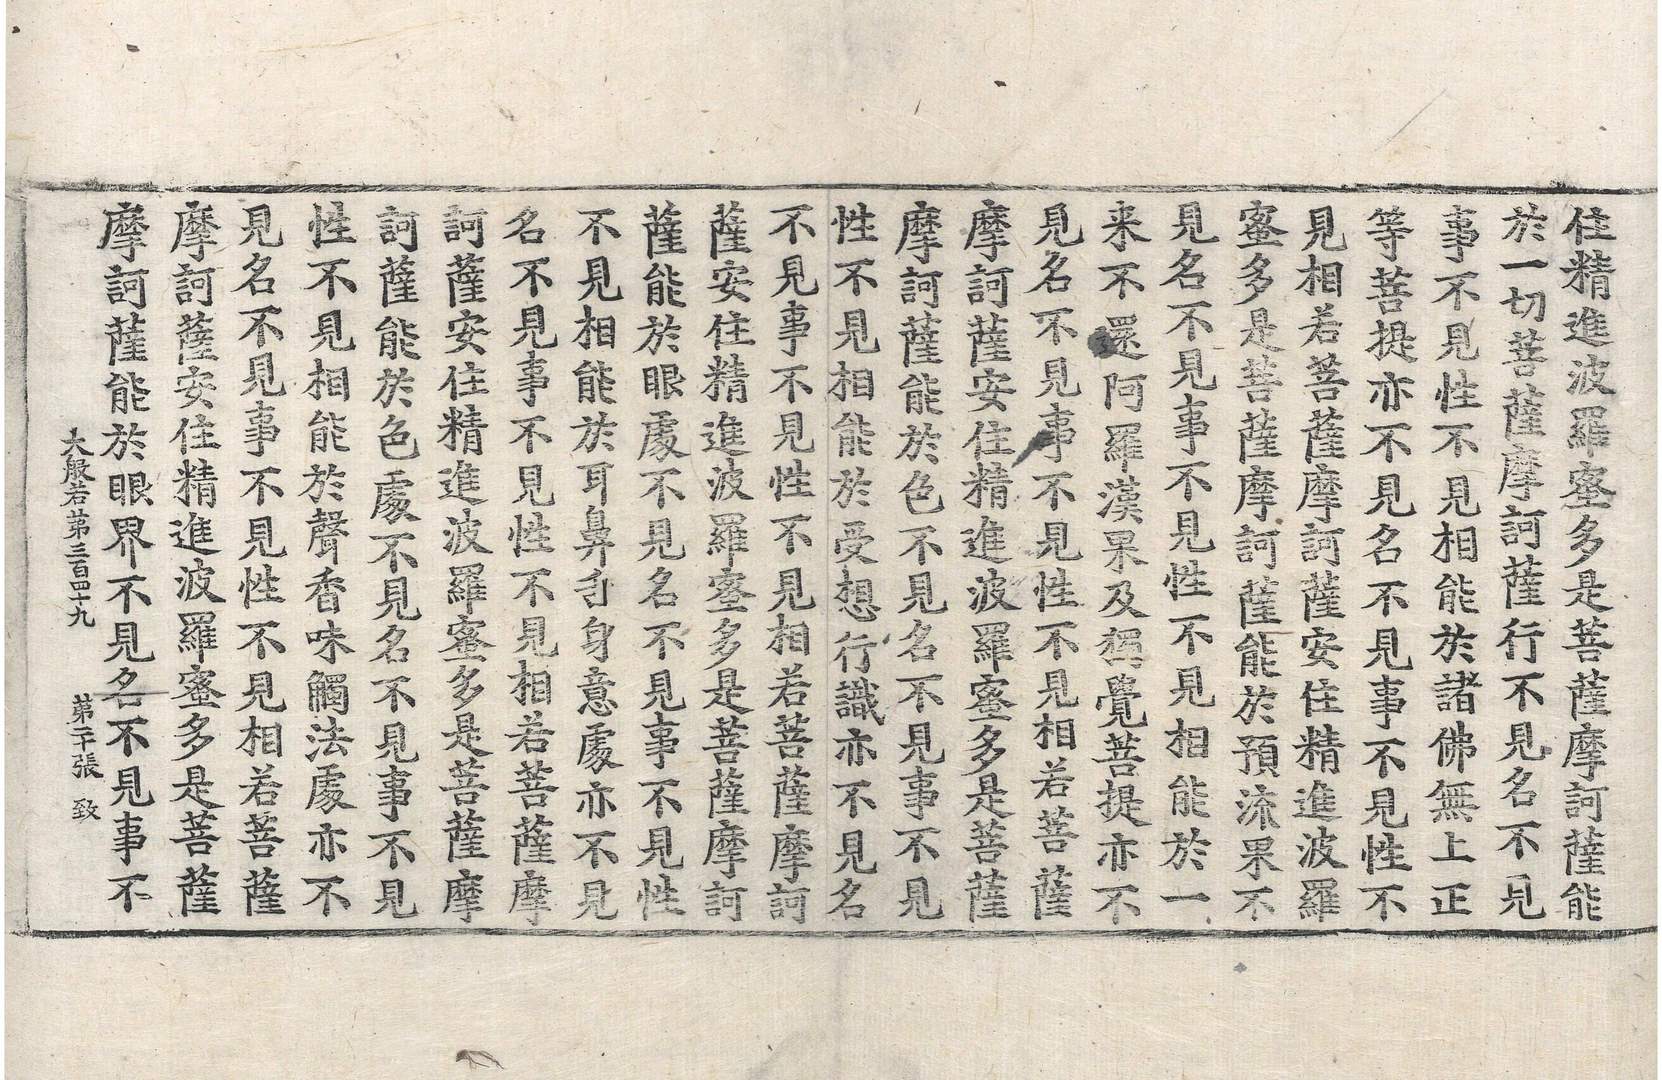 住精進波羅蜜多是菩薩摩訶薩能
於一切菩薩摩訶薩行不見名不見
事不見性不見相能於諸佛無上正
等菩提亦不見名不見事不見性不
見相若菩薩摩訶薩安住精進波羅
蜜多是菩薩摩訶薩能於預流果不
見名不見事不見性不見相能於一
来不還阿羅漢果及獨覺菩提亦不
見名不見事不見性不見相若菩薩
摩訶薩安住精進波羅蜜多是菩薩
摩訶薩能於色不見名不見事不見
性不見相能於受想行識亦不見名
不見事不見性不見相若菩薩摩訶
薩安住精進波羅蜜多是菩薩摩訶
薩能於眼處不見名不見事不見性
不見相能於耳鼻舌身意處亦不見
名不見事不見性不見相若菩薩摩
訶薩安住精進波羅蜜多是菩薩摩
訶薩能於色處不見名不見事不見
性不見相能於聲香味觸法處亦不
見名不見事不見性不見相若菩薩
摩訶薩安住精進波羅蜜多是菩薩
摩訶薩能於眼界不見名不見事不
大般若第三百四十九 第二十張 致